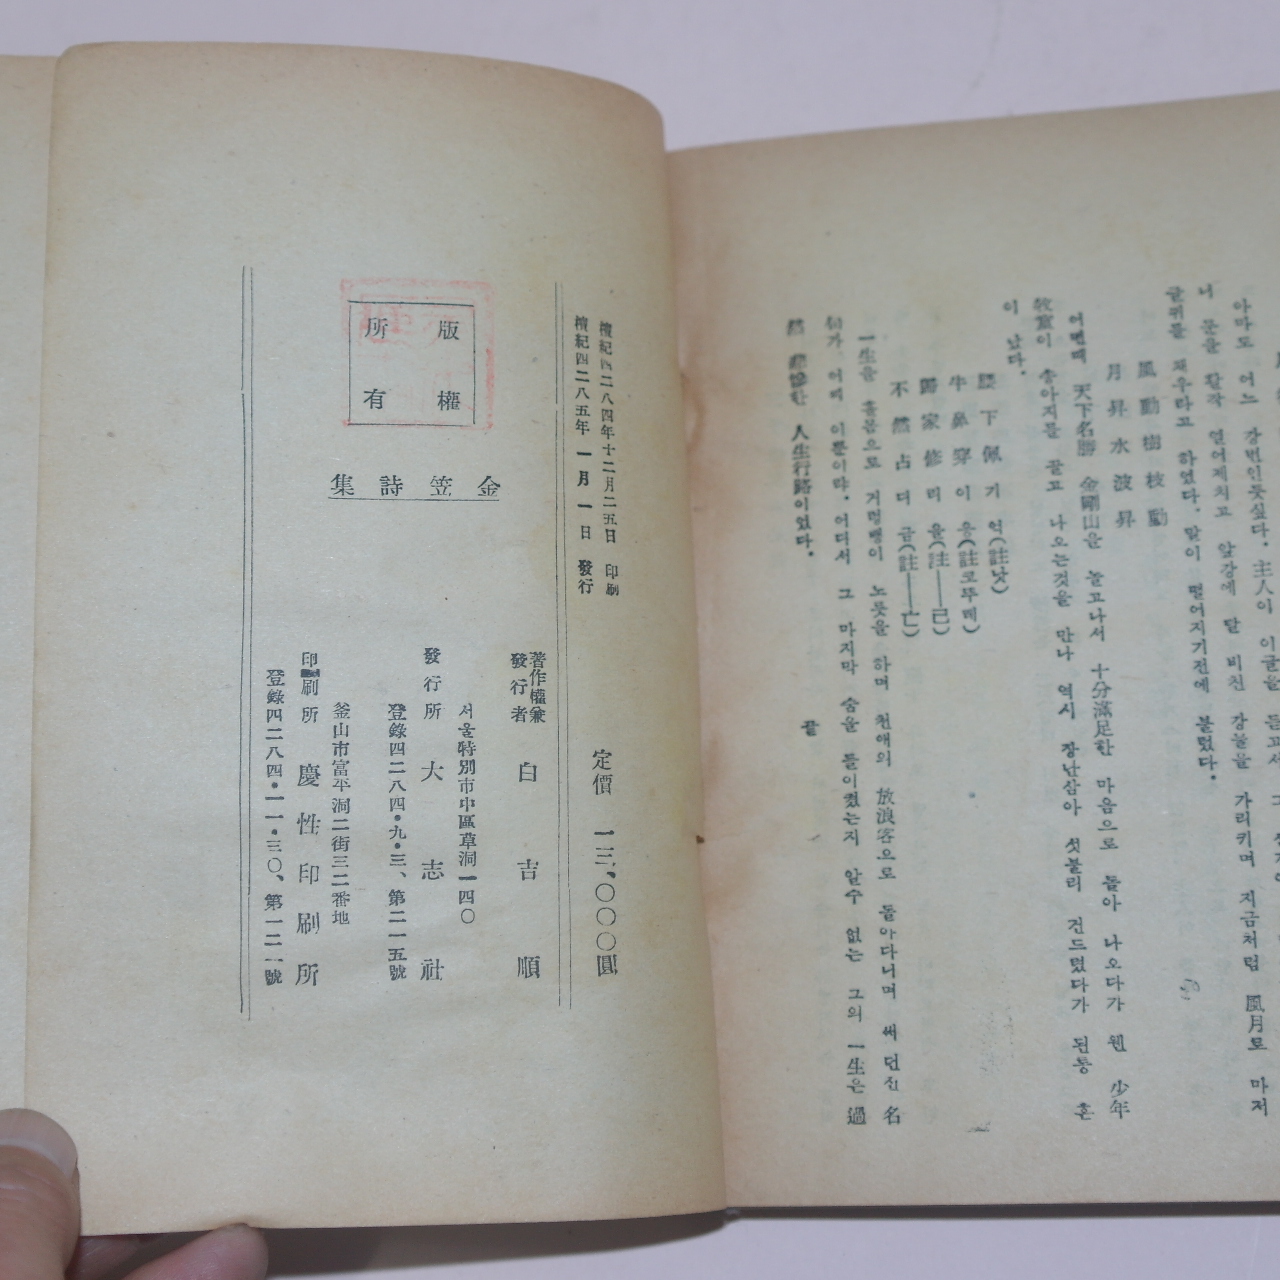 아마도 어느 강변인듯싶다. 主人이 이글을 듣고서
니 문을 활작 열어제치고 앞강에 달 비친 강물을 가리키며 지금처럼 風月로 마저
글귀를 채우라고 하였다. 말이 떨어지기전에 불렀다.
風動樹枝動
月昇水波昇
어떤때 天下名勝 金剛山을 놀고나서 十分滿足한 마음으로 돌아 나오다가 웬 少年
牧童이 송아지를 끌고 나오는것을 만나 역시 장난삼아 섯불리 건드렸다가 된통 혼
이 났다.
腰下佩기역(註낫)
牛鼻穿이응(註코뚜레)
歸家修리을(註—己)
不然占디귿(註—亡)
一生을 홀몸으로 거렁뱅이 노릇을 하며 천애의 放浪客으로 돌아다니며 써 던진 名
句가 어찌 이뿐이랴. 어디서 그 마지막 숨을 들이켰는지 알수 없는 그의 一生은 過
然 悲慘한 人生行路이었다.
끝
檀紀四二八四年十二月二五日 印刷
檀紀四二八五年 一月 一日 發行
定價 一三,〇〇〇圓
版權
所有
金笠詩集
著作權兼
發行者 白吉順
서울特別市中區草洞一四〇
發行所 大志社
登錄四二八四·九·三、第二一五號
釜山市富平洞二街三二番地
印刷所 慶性印刷所
登錄四二八四·一一·三〇、第一二一號